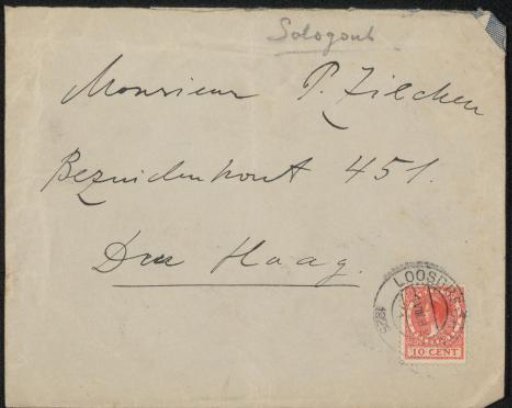 Sologoub
Monsieur P. Zilcken
Bezuidenhout 451.
Den Haag.
LOOSD
10 CENT